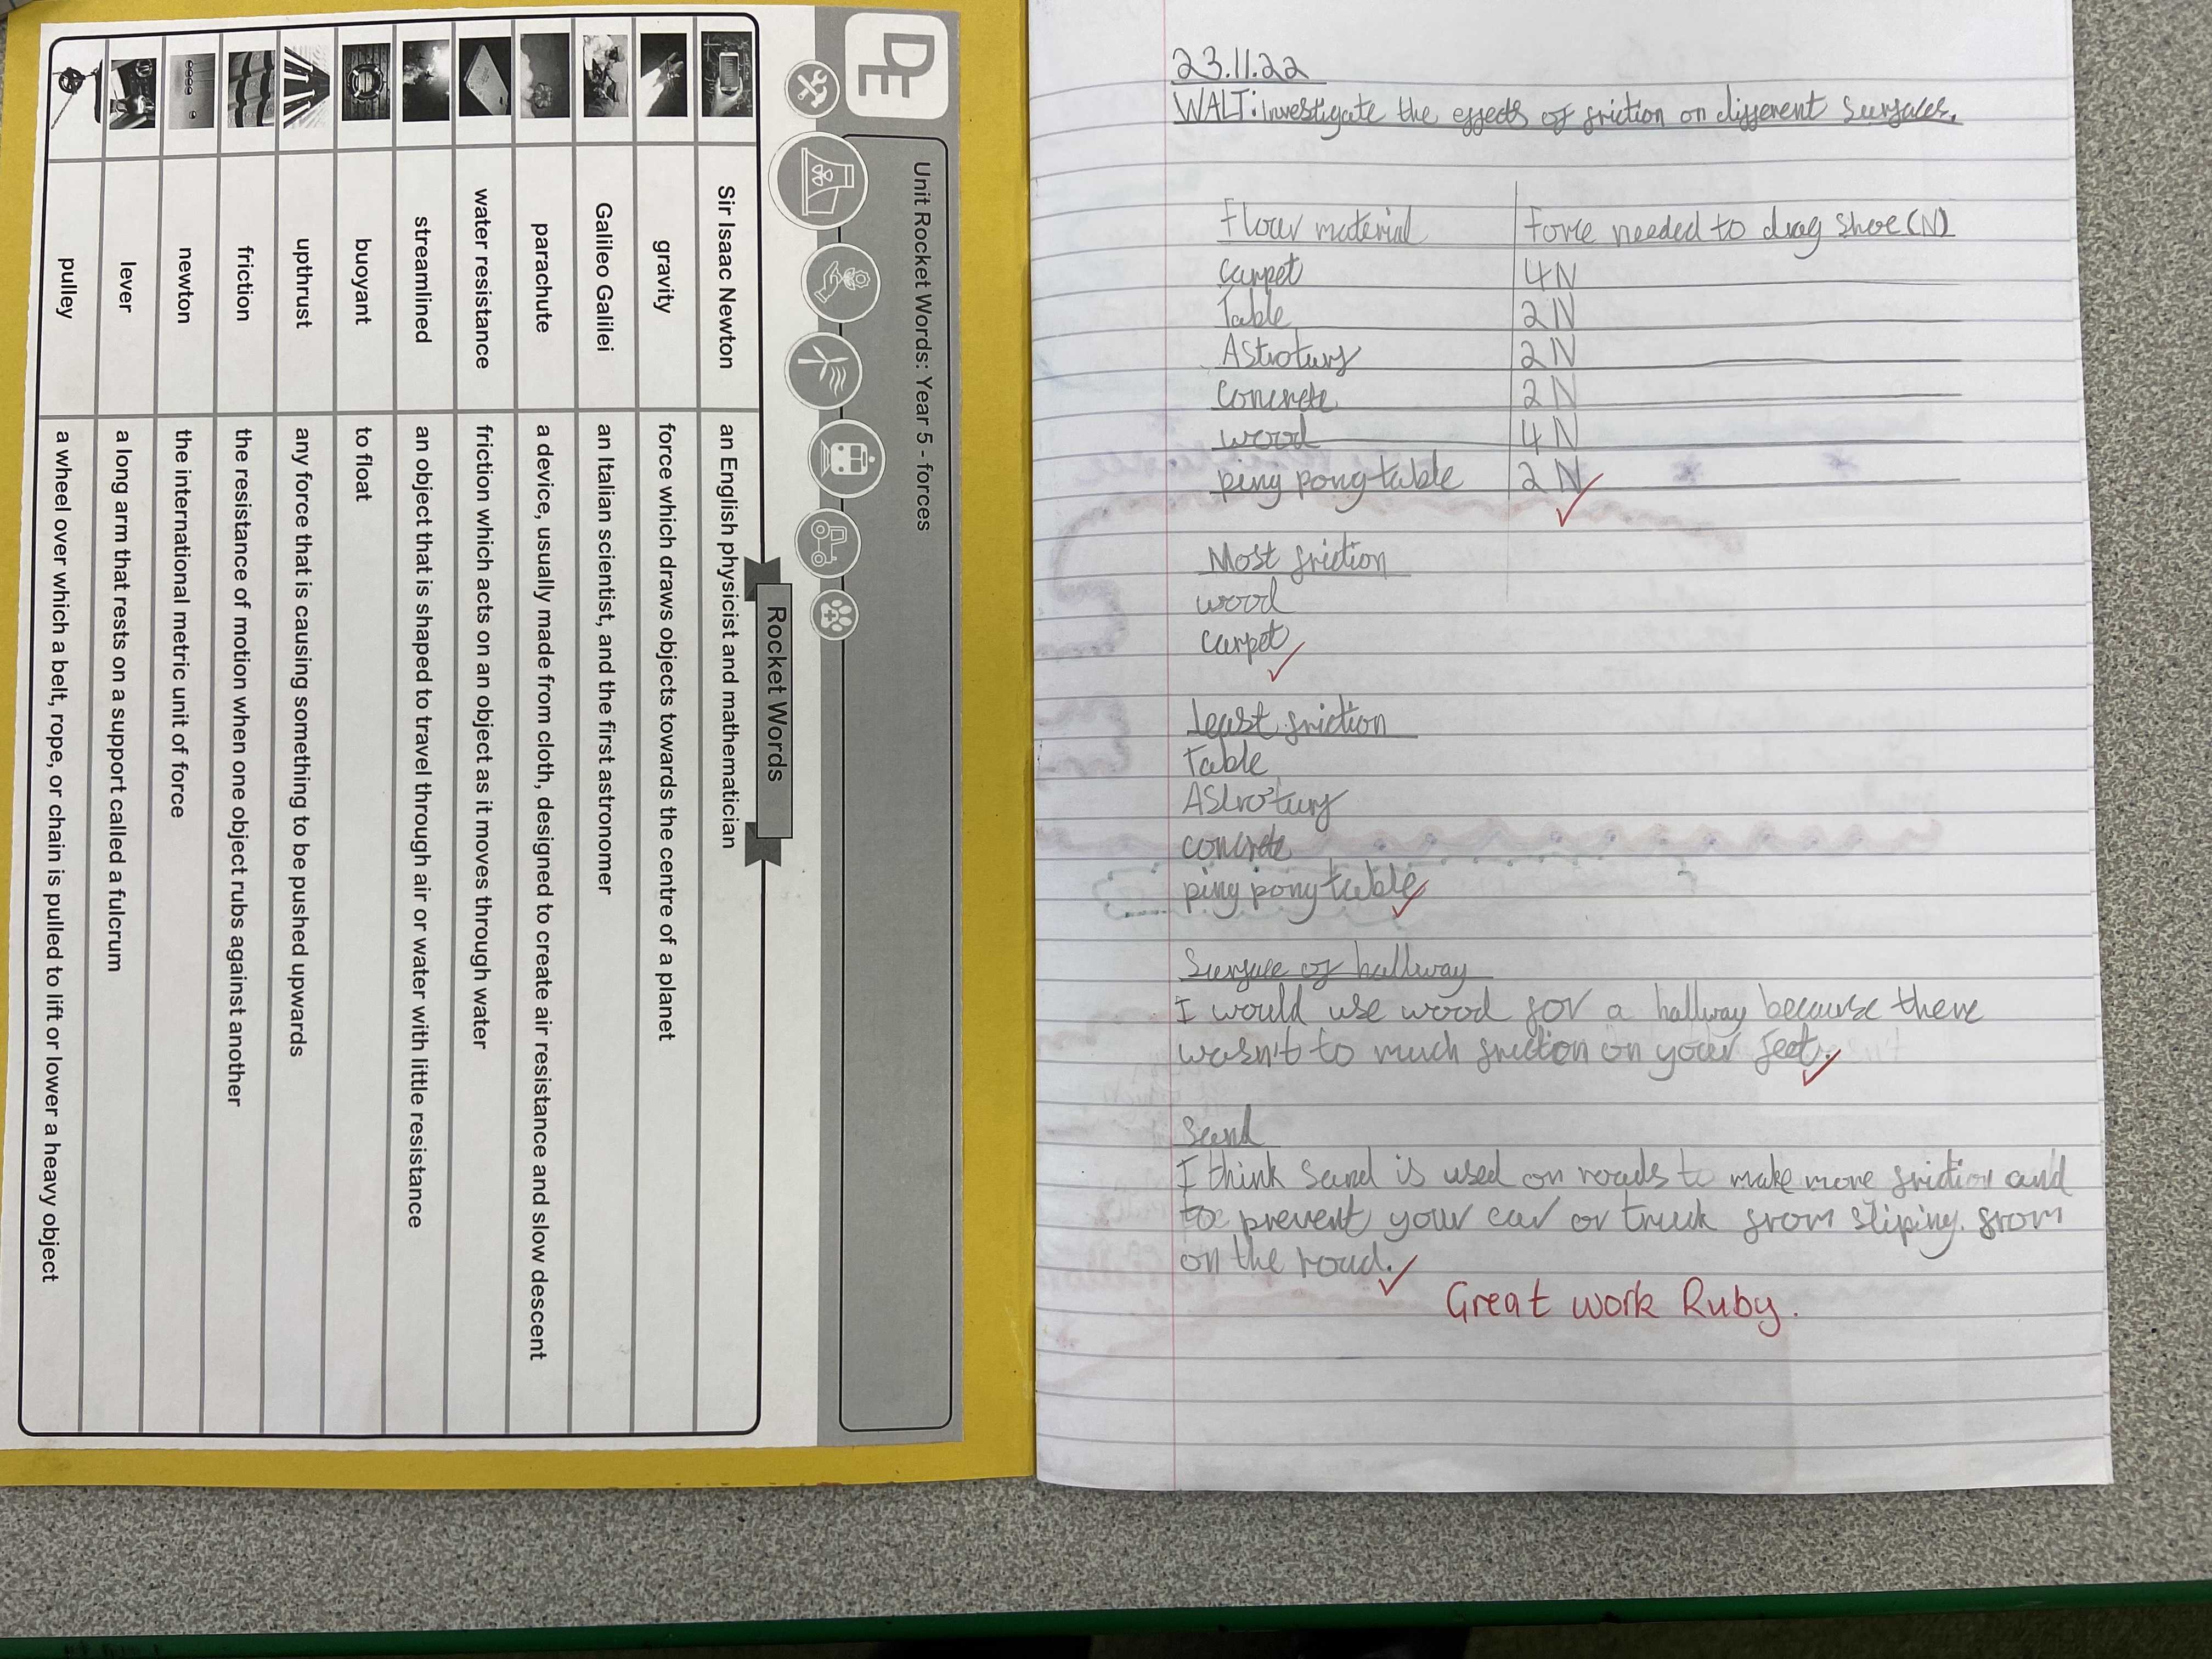 DE
Unit Rocket Words: Year 5 - forces
Rocket Words
Sir Isaac Newton an English physicist and mathematician
gravity force which draws objects towards the centre of a planet
Galileo Galilei an Italian scientist, and the first astronomer
parachute a device, usually made from cloth, designed to create air resistance and slow descent
water resistance friction which acts on an object as it moves through water
streamlined an object that is shaped to travel through air or water with little resistance
buoyant to float
upthrust any force that is causing something to be pushed upwards
friction the resistance of motion when one object rubs against another
newton the international metric unit of force
lever a long arm that rests on a support called a fulcrum
pulley a wheel over which a belt, rope, or chain is pulled to lift or lower a heavy object
23.11.22
WALT: Investigate the effects of friction on different surfaces.
Flour material Force needed to drag shoe (N)
carpet 4N
Table 2N
Astroturf 2N
Concrete 2N
wood 4N
ping pong table 2N
Most friction
wood
carpet
least friction
Table
Astroturf
concrete
ping pong table
Surface of hallway
I would use wood for a hallway because there
wasn't to much friction on your feet.
Sand
I think sand is used on roads to make more friction and
to prevent your car or truck from sliping. from
on the road.
Great work Ruby.